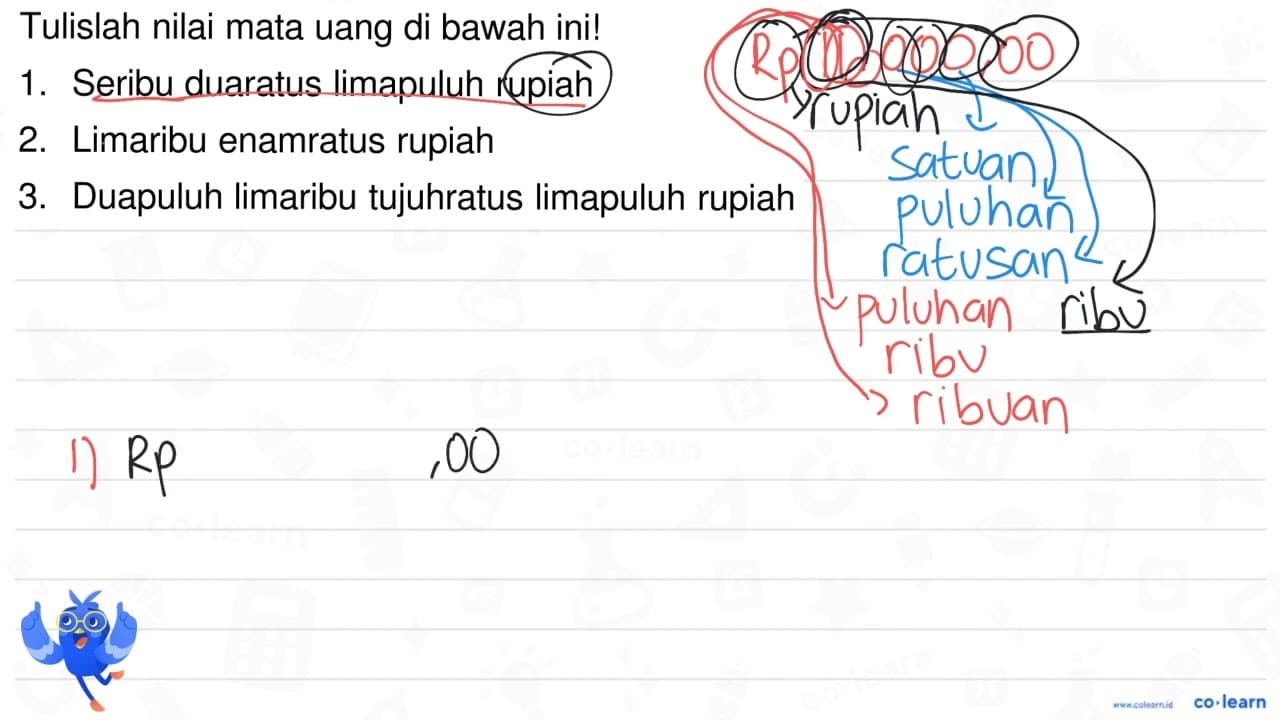 Tulislah nilai mata uang di bawah ini!
1. Seribu duaratus limapuluh rupiah
2. Limaribu enamratus rupiah
3. Duapuluh limaribu tujuhratus limapuluh rupiah
Rp 000,00
rupiah
satuan
puluhan
ratusan
puluhan ribu
ribu
ribuan
1) Rp ,00
co·learn
www.colearn.id co·learn